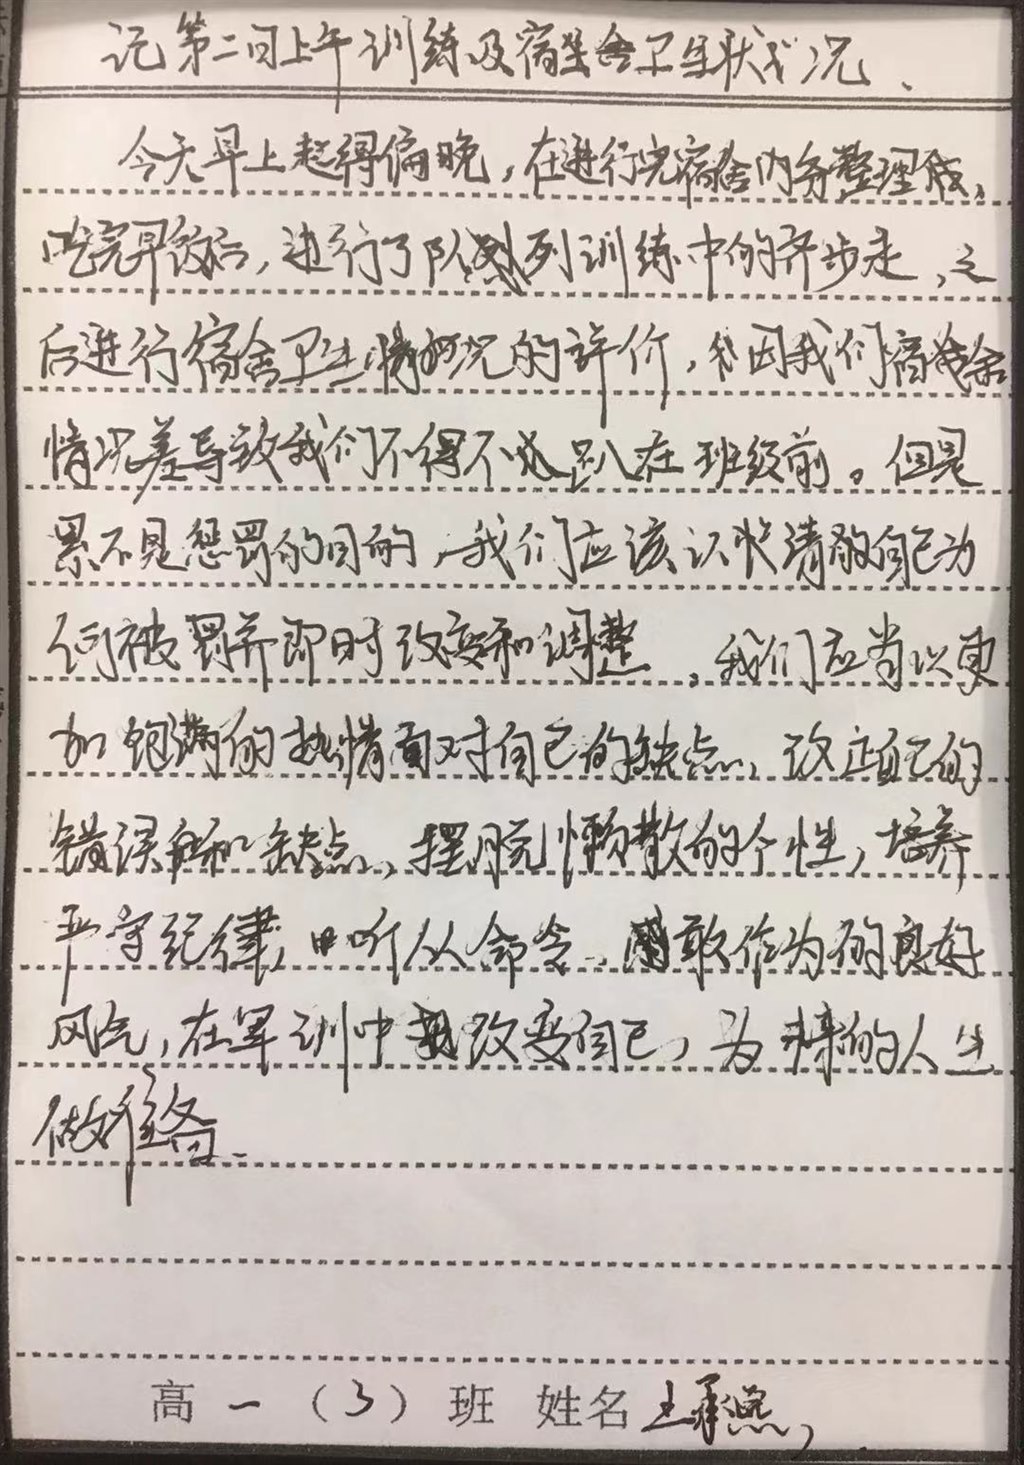 记第二日上午训练及宿舍卫生状况.
今天早上起得偏晚,在进行完宿舍内务整理后,
吃完早饭后,进行了队列训练中的齐步走,之
后进行宿舍卫生情况的评价,因我们宿舍
情况差导致我们不得不趴在班级前。但是
累不是惩罚的目的,我们应该认清自己为
何被罚并即时改变和调整,我们应当以更
加饱满的热情面对自己的缺点,改正自己的
错误和缺点,摆脱懒散的个性,培养
严守纪律,听从命令,勇敢作为的良好
风气,在军训中改变自己,为未来的人生
做准备.
高一(3)班 姓名 王承